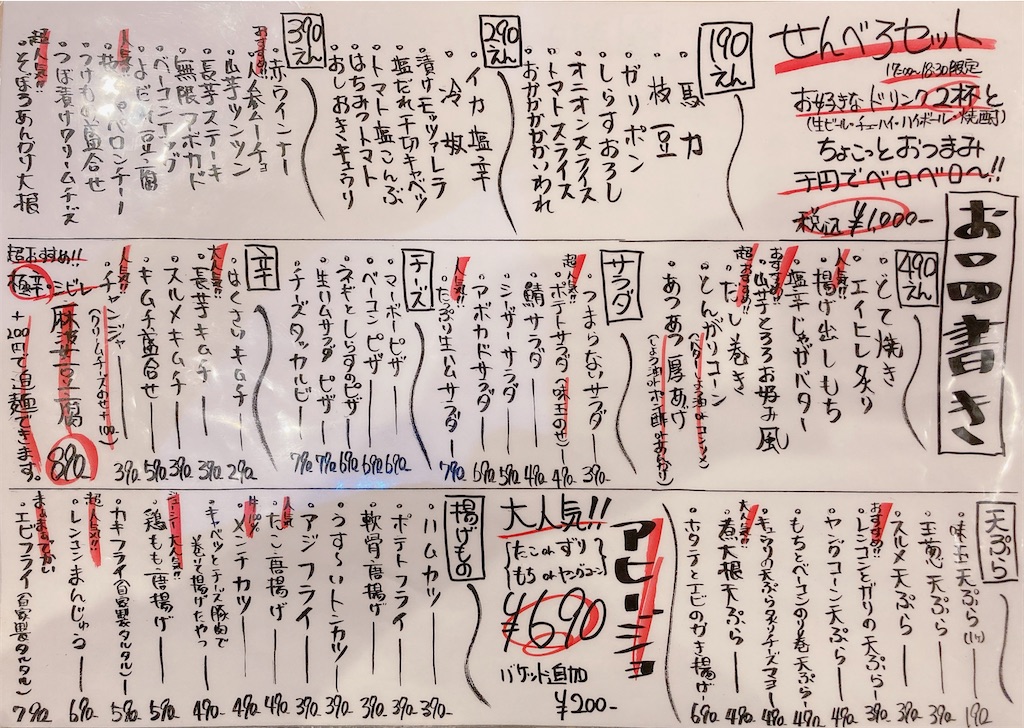 せんべろセット
17:00〜18:30限定
お好きなドリンク2杯と
(生ビール・チューハイ・ハイボール・焼酎)
ちょこっとおつまみ
千円でベロベロ〜!!
税込 ¥1,000-
お口四書き
190えん
・馬力
・枝豆
・ガリポン
・しらすおろし
・オニオンスライス
・トマトスライス
・おかかかかかいわれ
290えん
・イカ塩辛
・冷奴
・漬けモッツァレラ
・塩だれ千切キャベツ
・トマト塩こんぶ
・はちみつトマト
・おしおきキュウリ
390えん
・赤ウインナー
おすすめ!!
・人参ムーチョ
・山芋ツンツン
・長芋ステーキ
・無限アボカド
・ベーコンエッグ
・よだれ豆腐
人気!!
・ペペロンチーノ
・つけもの盛合せ
・つぼ漬けクリームチーズ
超人気!!
・そぼろあんかけ大根
490えん
・どて焼き
・エイヒレ炙り
人気!!
・揚げ出しもち
・塩辛じゃがバター
おすすめ!!
・山芋とろろお好み風
超おすすめ!!
・だし巻き
・とんがりコーン
・あつあつ厚あげ
サラダ
・つまらないサラダ 390-
超人気!!
・ポテトサラダ(味玉のせ) 490-
・鯖サラダ 490-
・シーザーサラダ 590-
・アボカドサラダ 690-
人気!!
・たっぷり生ハムサラダ 790-
チーズ
・マーボーピザ 690-
・ベーコンピザ 690-
・ネギとしらすのピザ 690-
・生ハムサラダピザ 790-
・チーズタッカルビ 790-
辛
・はくさいキムチ 290-
大人気!!
・長芋キムチ 390-
・スルメキムチ 390-
・キムチ盛合せ 590-
人気!!
・チャンジャ 390-
(クリームチーズのせ+100-)
超おすすめ!!
極辛シビレ
麻婆豆腐
890-
+200円で追麺できます。
天ぷら
・味玉天ぷら(1ヶ) 190-
・玉葱天ぷら 390-
・スルメ天ぷら 390-
おすすめ!!
・レンコンとガリの天ぷら 390-
・ヤングコーン天ぷら 490-
・もちとベーコンのり巻天ぷら 490-
・キュウリの天ぷらネギチーズマヨ 490-
大人気!!
・煮大根天ぷら 490-
・ホタテとエビのかき揚げ 690-
大人気!!
アヒージョ
たこ or ずり
もち or ヤングコーン
¥690
バケット追加
¥200-
揚げもの
・ハムカツ 390-
・ポテトフライ 390-
・軟骨唐揚げ 390-
・うす〜いトンカツ 390-
・アジフライ 390-
人気
・たこ唐揚げ 490-
・メンチカツ 490-
・キャベツとチーズ豚肉で
巻いて揚げたやつ 490-
ジューシー大人気!!
・鶏もも唐揚げ 590-
・カキフライ(自家製タルタル) 590-
超人気!!
・レンコンまんじゅう 690-
まぁまぁでかい
・エビフライ(自家製タルタル) 790-